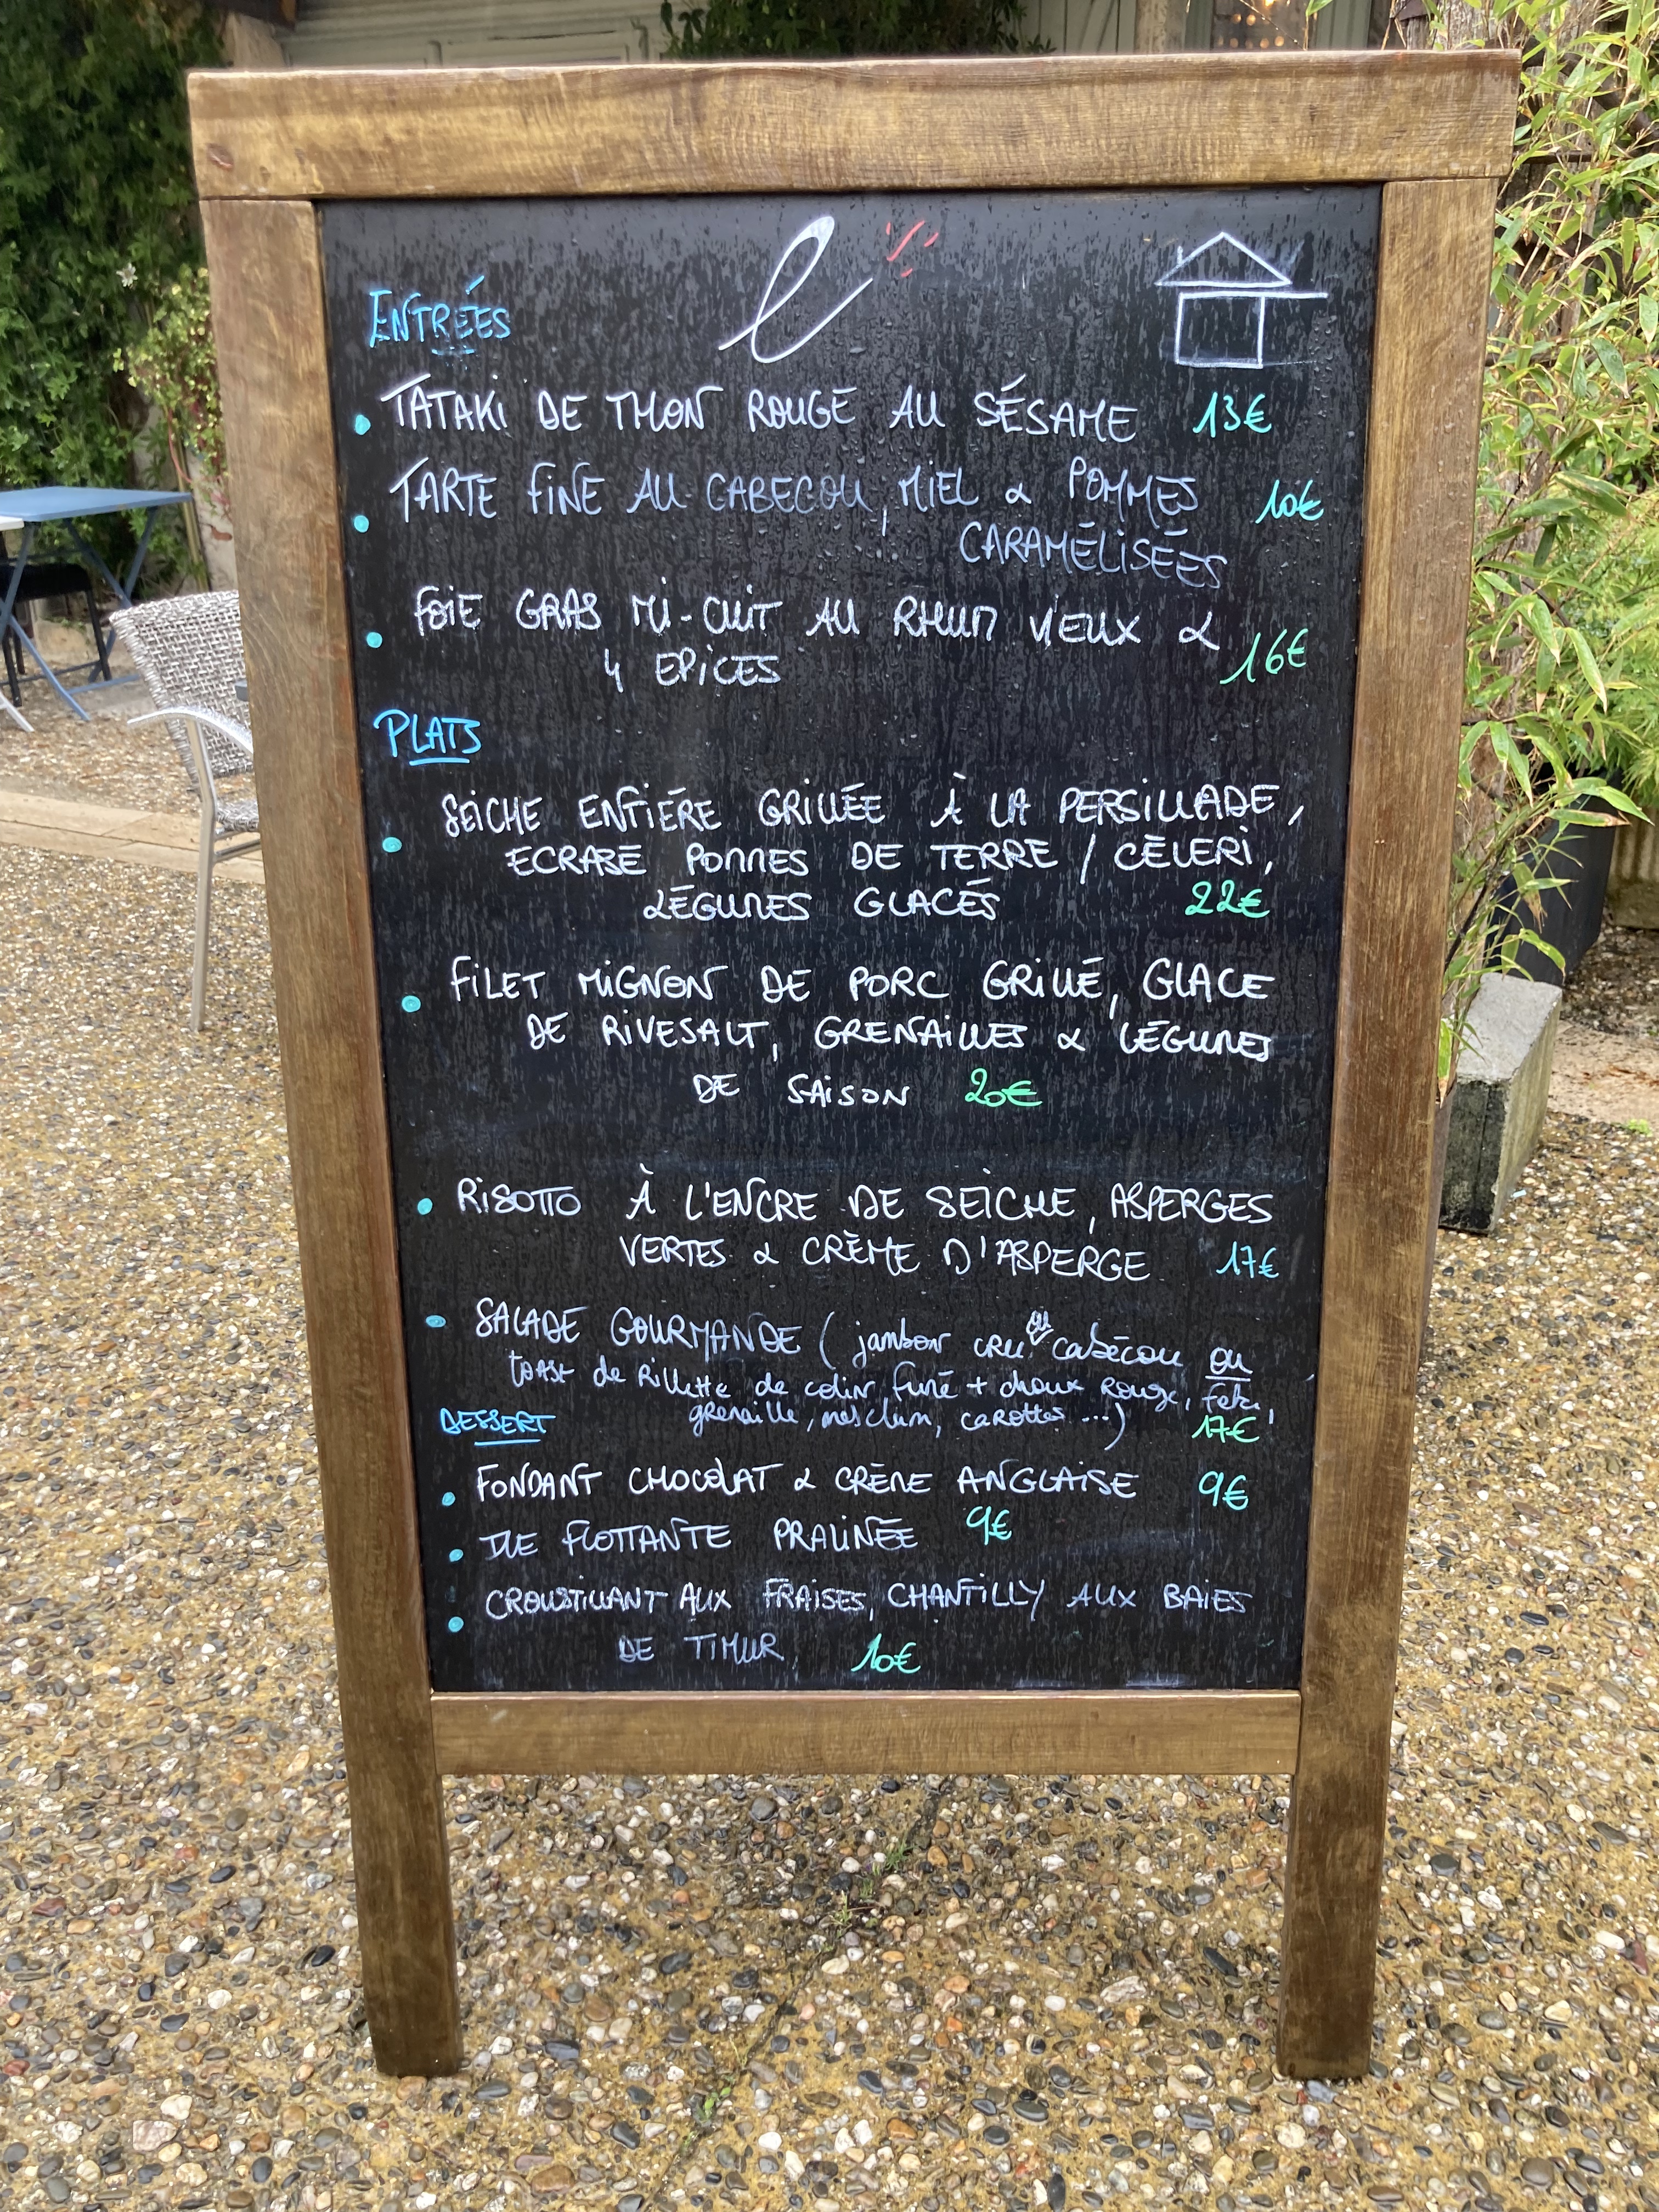 ENTRÉES
TATAKI DE THON ROUGE AU SÉSAME 13€
TARTE FINE AU CABECOU, MIEL & POMMES 10€
CARAMÉLISÉES
FOIE GRAS MI-CUIT AU RHUM VIEUX &
4 EPICES 16€
PLATS
SEICHE ENTIÉRE GRILLÉE À LA PERSILLADE,
ECRASE POMMES DE TERRE / CÉLERI,
LÉGUMES GLACÉS 22€
FILET MIGNON DE PORC GRILLÉ, GLACE
DE RIVESALT, GRENAILLES & LÉGUMES
DE SAISON 20€
RISOTTO À L'ENCRE DE SEICHE, ASPERGES
VERTES & CRÈME D'ASPERGE 17€
SALADE GOURMANDE (jambon cru ou cabécou ou
toast de Rillette de colin fumé + choux Rouge, feta,
grenaille, mesclum, carottes ...) 17€
DESSERT
FONDANT CHOCOLAT & CRÈME ANGLAISE 9€
ILE FLOTTANTE PRALINÉE 9€
CROUSTILLANT AUX FRAISES, CHANTILLY AUX BAIES
DE TIMUR, 10€